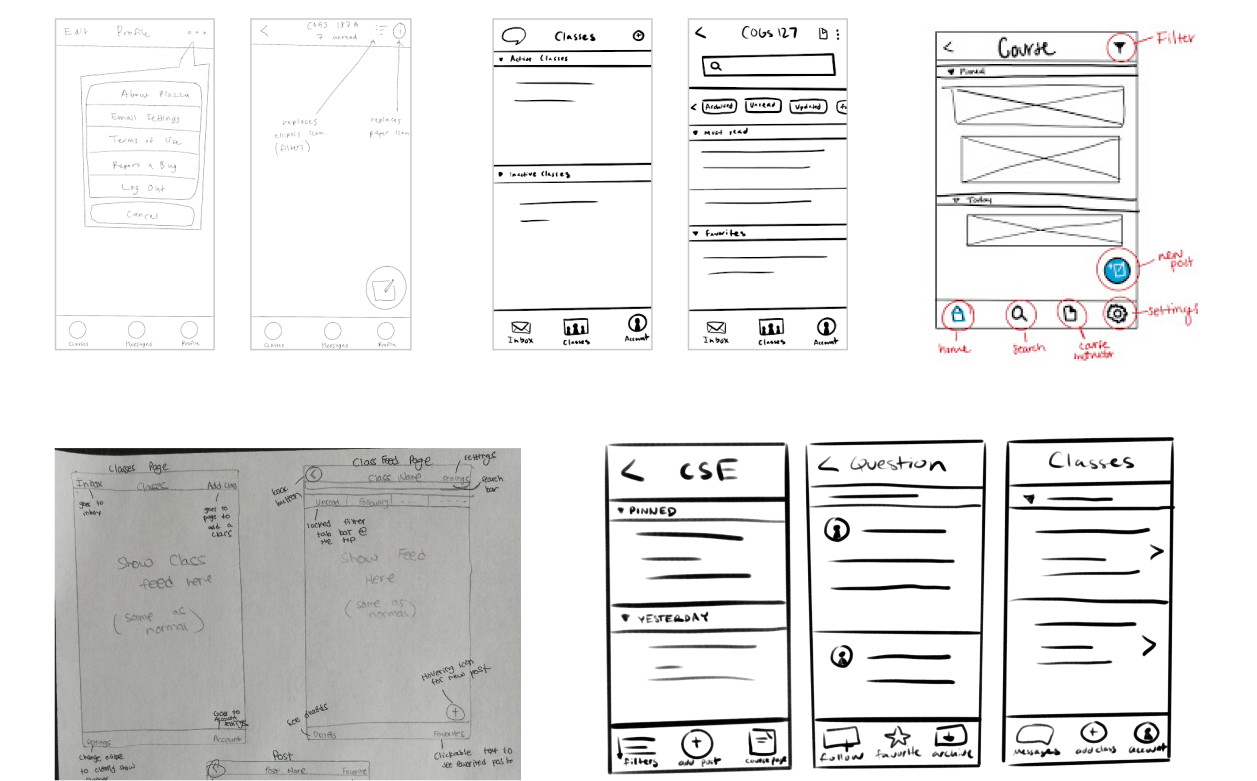 Edit Profile
About Piazza
Email Settings
Terms of Use
Report a Bug
Log Out
Cancel
Classes Messages Profile
COGS 187A
7 unread
replaces
elipsis icon
(filters)
replaces
paper icon
Classes Messages Profile
Classes
Active Classes
Inactive Classes
Inbox Classes Account
COGS 127
Archived Unread Updated
Must read
Favorites
Inbox Classes Account
Course
Filter
Pinned
Today
new
post
settings
home
search
course
instructor
Classes Page
Inbox Classes Add Class
goes to
inbox
goes to
page to
add a
class
Show Class
feed here
(same as
normal)
Goes to
Account
Settings
Settings Account
Class Feed Page
settings
back
button
Class Name Settings
search
bar
Unread Following
locked filter
tab bar @
the top
Show Feed
Here
(same as
normal)
Hovering icon
for new post
see drafts
Drafts Favorites
Clickable text to
see favorited posts
Post
Post Name Favorite
CSE
PINNED
YESTERDAY
filters add post course page
Question
follow favorite archive
Classes
messages add class account